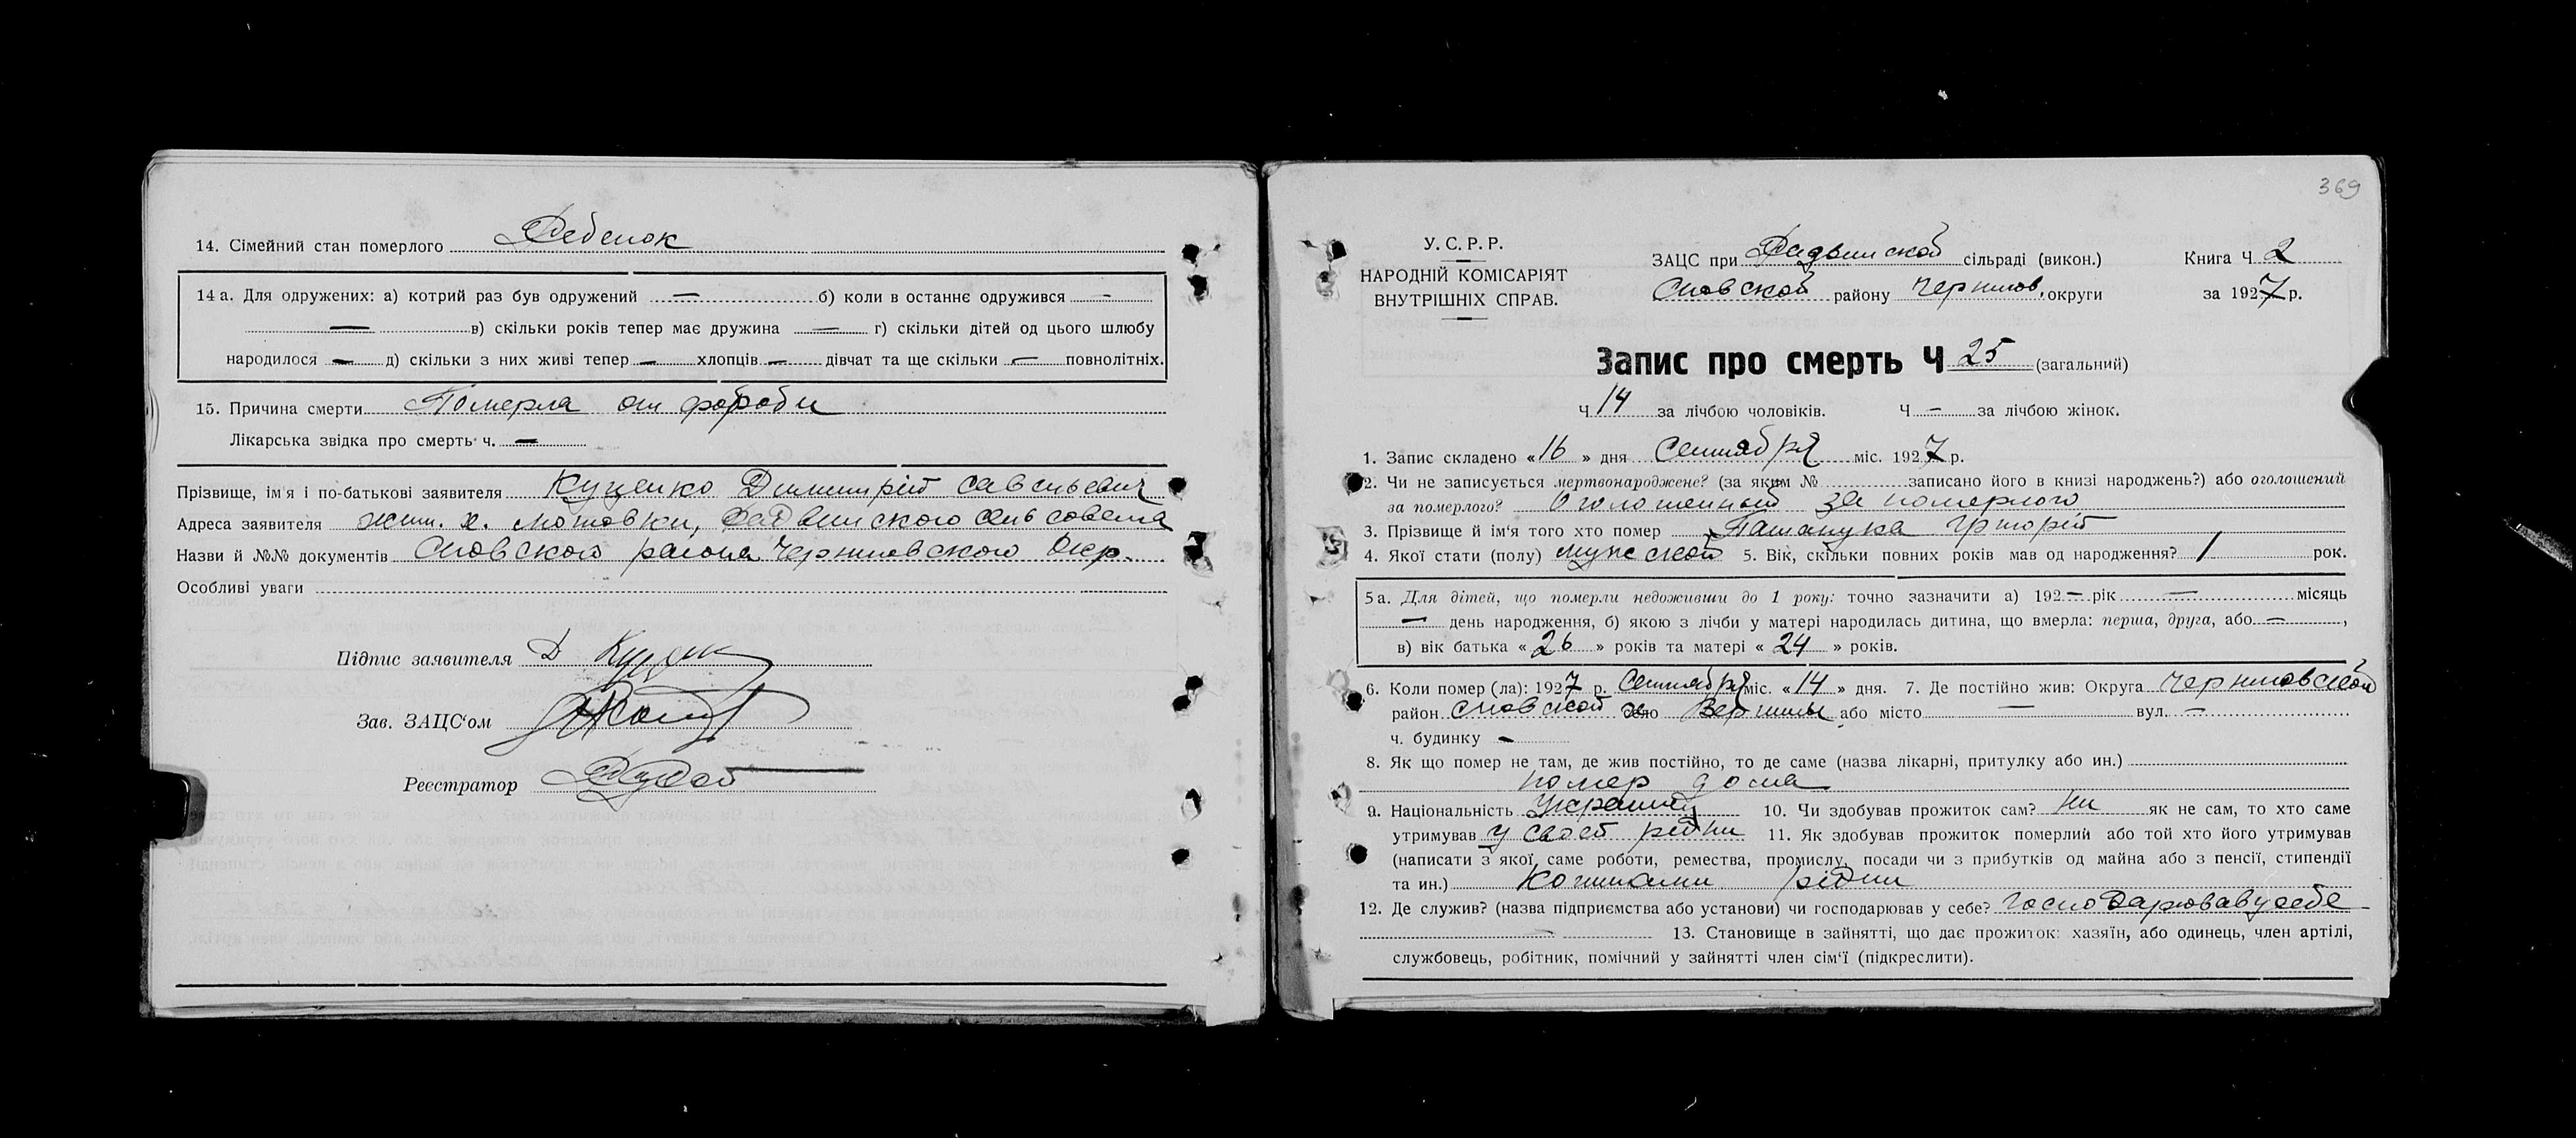 14. Сімейний стан померлого Ребенок
14 а. Для одружених: а) котрий раз був одружений — б) коли в останнє одружився -
— в) скільки років тепер має дружина — г) скільки дітей од цього шлюбу
народилося — д) скільки з них живі тепер — хлопців — дівчат та ще скільки — повнолітніх.
15. Причина смерти Померла от
Лікарська звідка про смерть ч. —
Прізвище, ім'я і по-батькові заявителя Куценко Димитрій Савельевич
Адреса заявителя жит. х. сельсовета
Назви й №№ документів Сновского района Черниговского Окр.
Особливі уваги
Підпис заявителя Д
Зав. ЗАЦС'ом
Реєстратор
369
У. С. Р. Р.
НАРОДНІЙ КОМІСАРІЯТ
ВНУТРІШНІХ СПРАВ.
ЗАЦС при сільраді (викон.)
Сновской району Чернигов. округи
Книга Ч 2
за 1927 р.
Запис про смерть Ч 25 (загальний)
Ч 14 за лічбою чоловіків. Ч - за лічбою жінок.
1. Запис складено «16» дня Сентября міс. 1927 р.
2. Чи не записується мертвонароджене? (за яким № записано його в книзі народжень?) або оголошений
за померлого? Оголошенный за померлого
3. Прізвище й ім'я того хто помер Григорій
4. Якої стати (полу) мужской 5. Вік, скільки повних років мав од народження? 1 рок.
5 а. Для дітей, що померли недоживши до 1 року: точно зазначити а) 192— рік — місяць
— день народження, б) якою з лічби у матері народилась дитина, що вмерла: перша, друга, або —,
в) вік батька «26» років та матері «24» років.
6. Коли помер (ла): 1927 р. Сентября міс. «14» дня. 7. Де постійно жив: Округа Черниговской
район Сновской село або місто — вул. —
ч. будинку -
8. Як що помер не там, де жив постійно, то де саме (назва лікарні, притулку або ин.)
помер дома
9. Національність 10. Чи здобував прожиток сам? Ни як не сам, то хто саме
утримував у своей рідни 11. Як здобував прожиток померлий або той хто його утримував
(написати з якої саме роботи, ремества, промислу, посади чи з прибутків од майна або з пенсії, стипендії
та ин.) рідни
12. Де служив? (назва підприємства або установи) чи господарював у себе? Господарював у себе
— 13. Становище в зайнятті, що дає прожиток: хазяїн, або одинець, член артілі,
службовець, робітник, помічний у зайнятті член сім'ї (підкреслити).